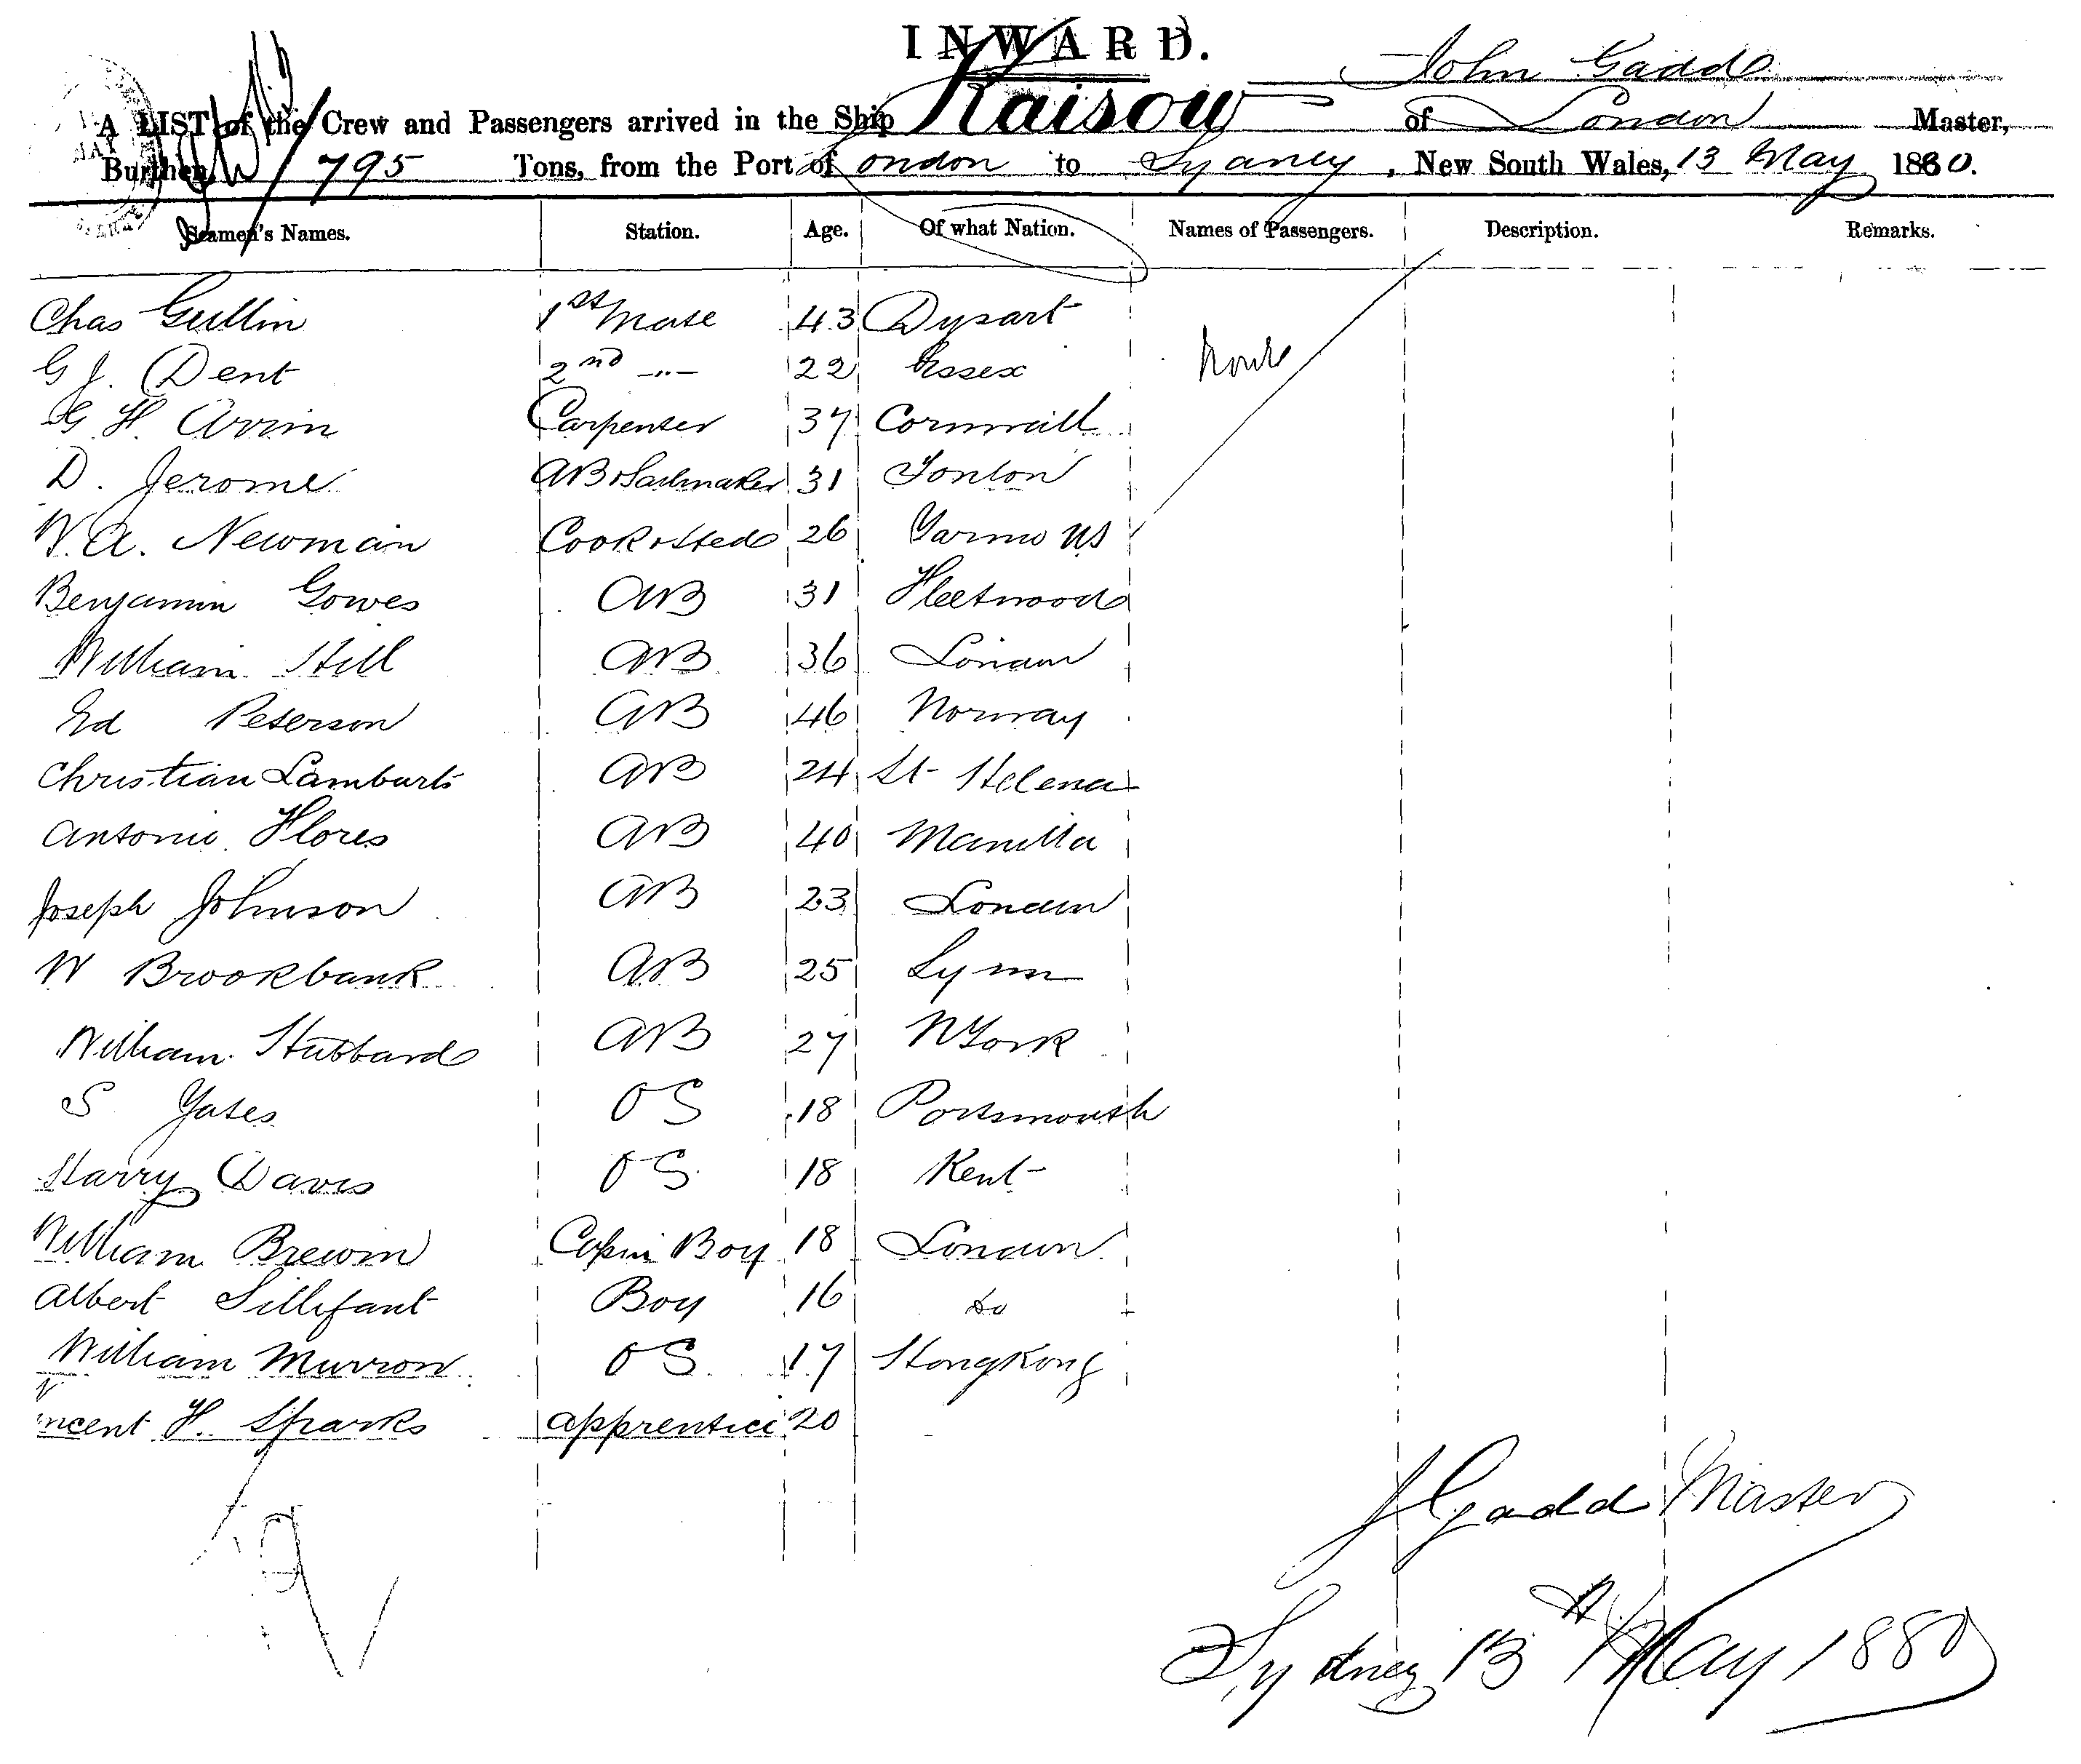 INWARD.
John Gadd
A LIST of the Crew and Passengers arrived in the Ship Kaisow of London Master,
Burthen 795 Tons, from the Port of London to Sydney, New South Wales, 13 May 1880.
Seamen's Names. Station. Age. Of what Nation. Names of Passengers. Description. Remarks.
Chas Gullin 1st Mate 43 Dysart
G J. Dent 2nd -"- 22 Essex
G H. Arrin Carpenter 37 Cornwall
D. Jerome AB & Sailmaker 31
W. A. Newman Cook & Sted 26
Benjamin Gowes AB 31 Fleetwood
William Hill AB 36 London
Ed Peterson AB 46 Norway
Christian Lamburts AB 24 St Helena
Antonio Flores AB 40 Manilla
Joseph Johnson AB 23 London
W Brookbank AB 25 Lynn
William Hubbard AB 27 NYork
S Yates OS 18 Portsmouth
Harry Davis OS 18 Kent
William Brewin Boy 18 London
Albert Sillifant Boy 16 do
William Murron OS 17 HongKong
Vincent H. Sparks apprentice 20
19
J Gadd Master
Sydney 13th May 1880